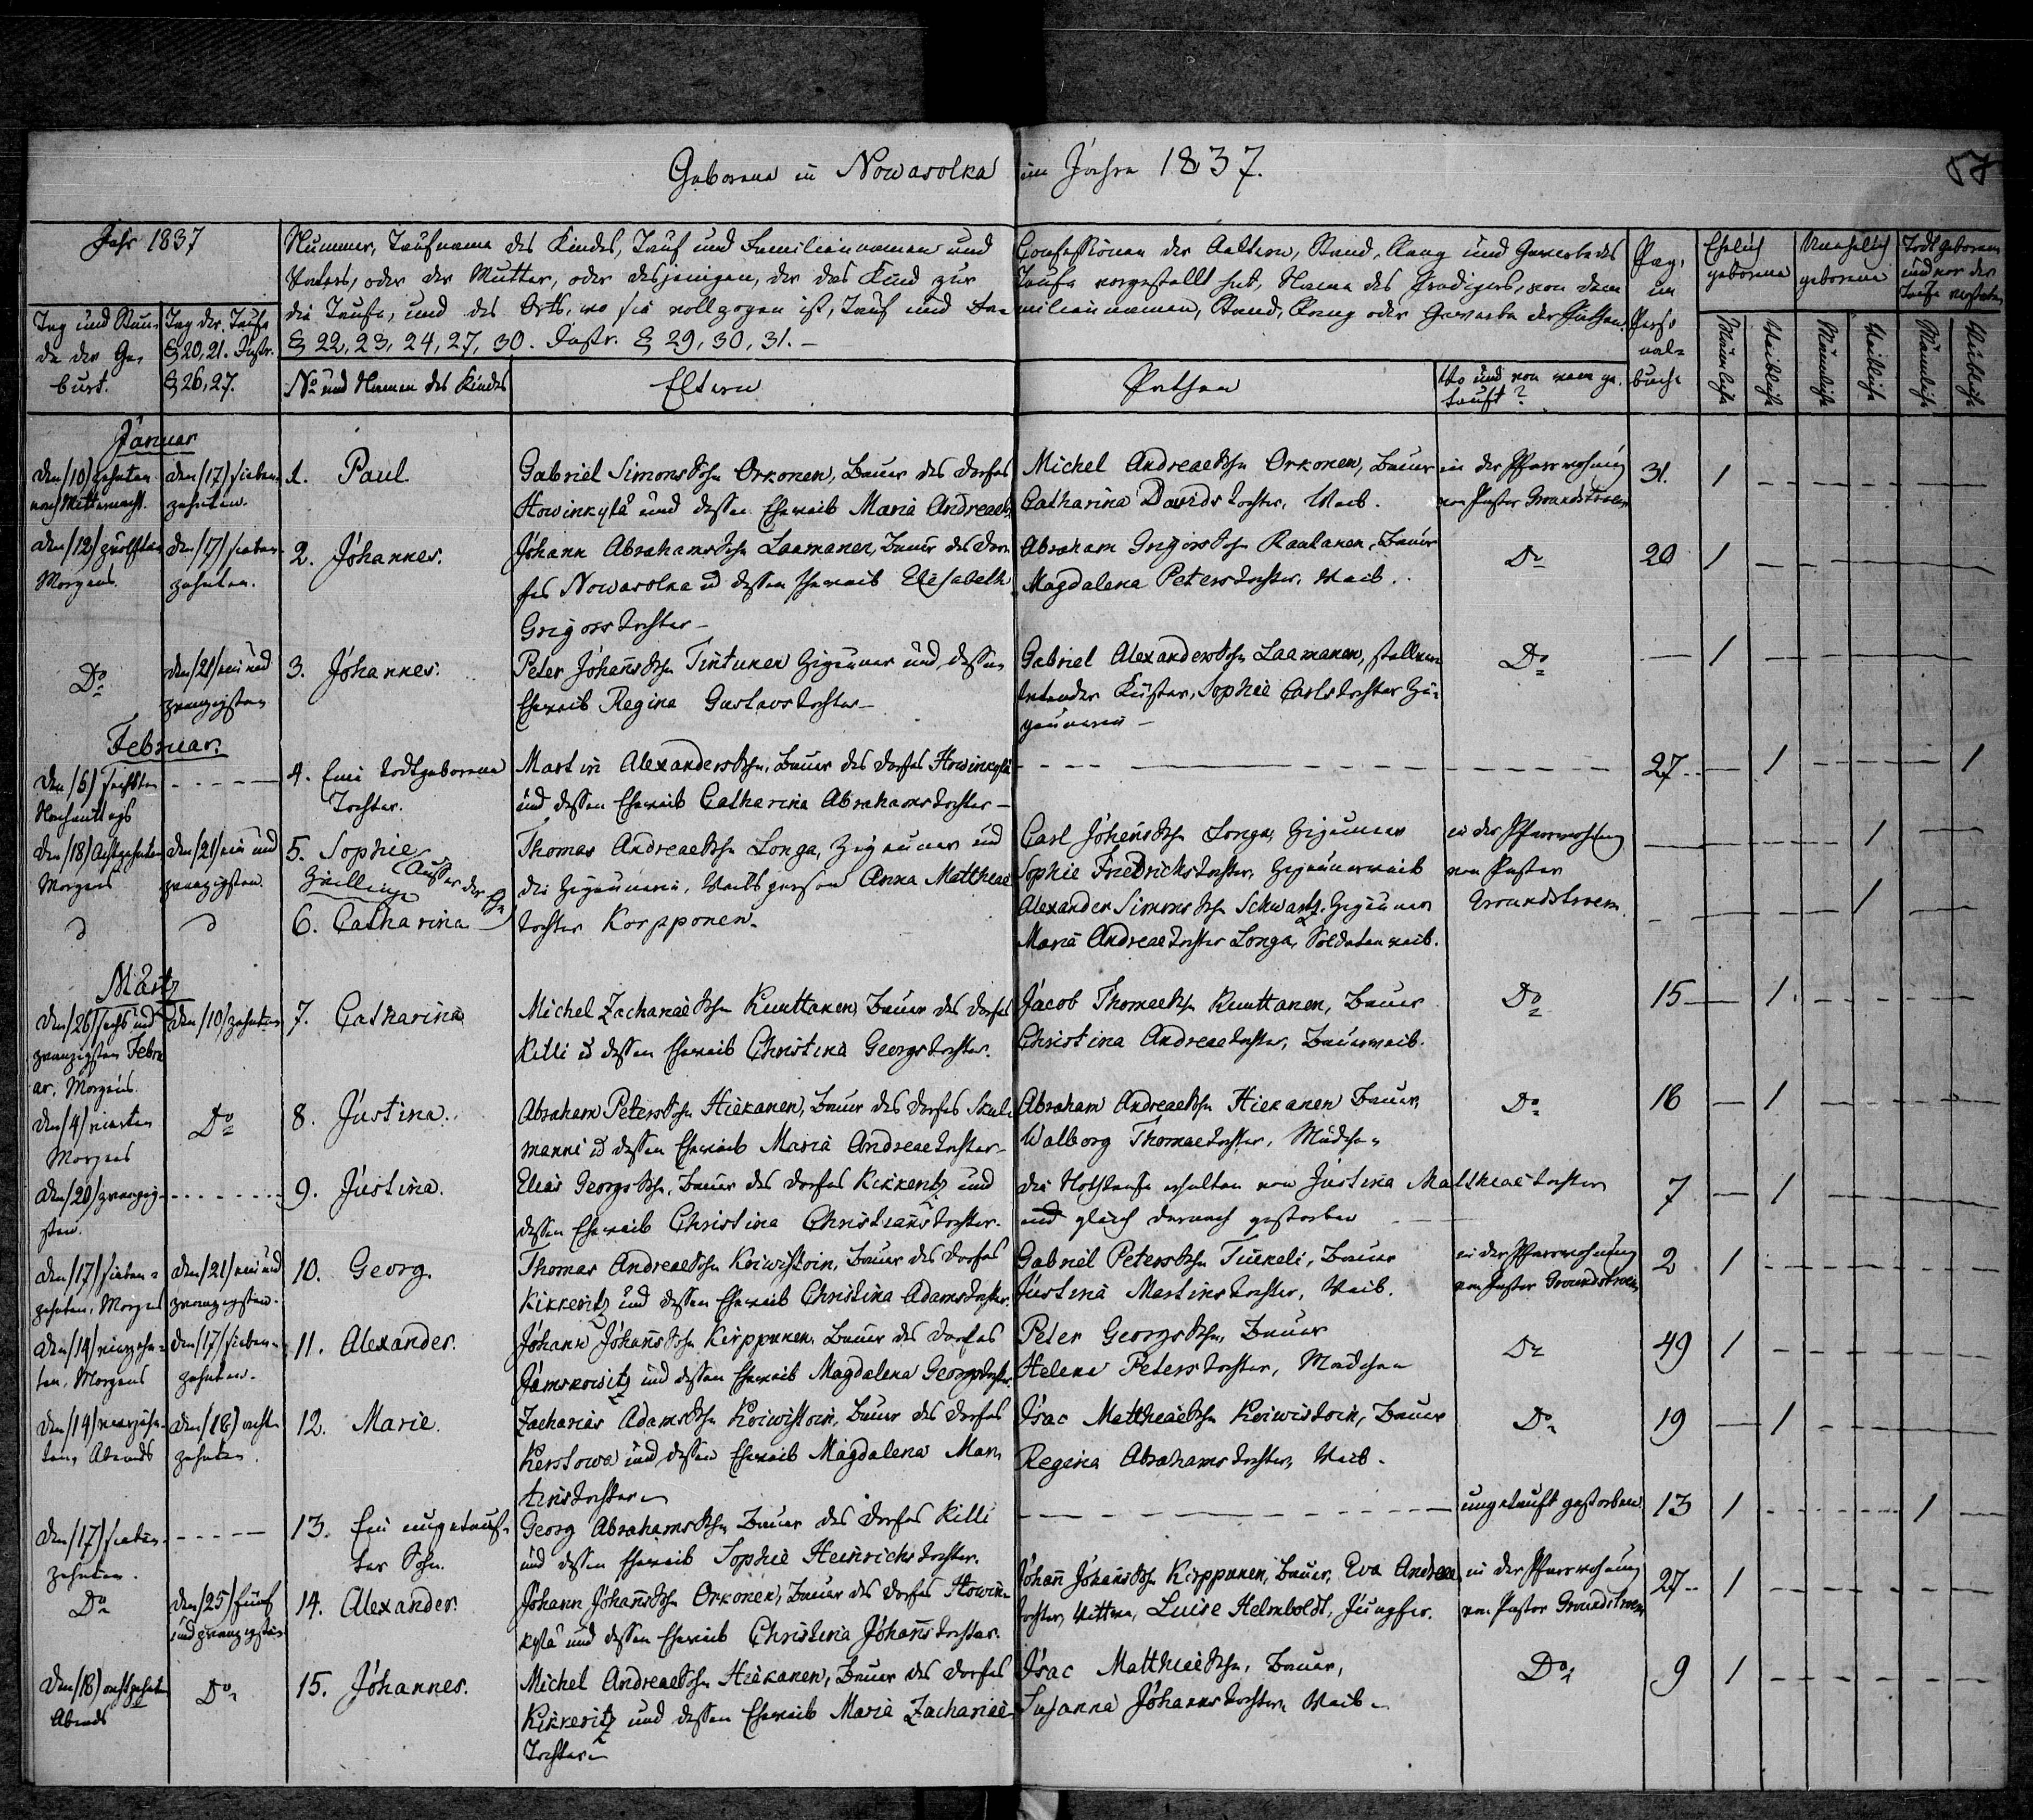 Geborene in Nowasolka im Jahre 1837.
Jahr 1837
Tag und Stun-
de der Ge-
burt.
Tag der Taufe
§ 20, 21. Instr.
§ 26, 27.
Nummer, Taufname des Kindes, Tauf und Familiennamen und
Confessionen der Aeltern, Stand, Rang und Gewerbe des
Vaters, oder der Mutter, oder desjenigen, der das Kind zur
Taufe vorgestellt hat, Name des Predigers, von dem
die Taufe, und des Orts, wo sie vollzogen ist, Tauf und Fa-
miliennamen, Stand, Rang oder Gewerbe der Pathen.
§ 22, 23, 24, 27, 30. Instr. § 29, 30, 31.
No und Namen des Kindes
Eltern
Pathen
Wo und von wem ge-
tauft?
Pag.
im
Perso-
nal-
buche
Ehelich
geborene
Unehelich
geborene
Todtgeborene
und vor der
Taufe verstorben
Männliche
Weibliche
Männliche
Weibliche
Männliche
Weibliche
Januar
den /10/ zehnten
nach Mitternacht.
den /17/ sieben-
zehnten.
1. Paul
Gabriel Simons Sohn Orkonen, Bauer des Dorfes
Howinkylä und dessen Eheweib Maria Andreae
Michel Andreae Sohn Orkonen, Bauer
Catharina Davids tochter, Weib.
in der Pfarrwohnung
von Pastor Groundstroem
31. 1
den /12/ zwölften
Morgens.
den /17/ sieben-
zehnten.
2. Johannes.
Johann Abrahams Sohn Laamanen, Bauer des Dor-
fes Nowasolka u dessen Eheweib Elisabeth
Grigors tochter
Abraham Grigors Sohn Rautanen, Bauer
Magdalena Peters tochter, Weib.
Do
20 1
Do
den /21/ ein und
zwanzigsten
3. Johannes.
Peter Johans Sohn Tintunen Zigeuner und dessen
Eheweib Regine Gustavs tochter
Gabriel Alexanders Sohn Laamanen, stellver-
tretender Küster, Sophie Carls tochter Zi-
geunerin
Do
1
Februar.
den /6/ sechsten
Nachmittags
4. Eine todtgeborene
Tochter.
Martin Alexanders Sohn, Bauer des Dorfes Howinkylä
und dessen Eheweib Catharina Abrahams tochter
27 1 1
den /18/ Achtzehnten
Morgens
den /21/ ein und
zwanzigsten.
5. Sophie
Zwillinge
Ausser der Ehe
6. Catharina
Thomas Andreae Sohn Longa, Zigeuner und
die Zigeunerin, Weibsperson Anna Matthaei
tochter Korpponen.
Carl Johans Sohn Longa, Zigeuner
Sophie Friedrichs tochter, Zigeunerweib
Alexander Simons Sohn Schwartz, Zigeuner
Maria Andreae tochter Longa, Soldatenweib.
in der Pfarrwohnung
von Pastor
Groundstroem.
1
1
Märtz
den /26/ sechs und
zwanzigsten Febru
ar, Morgens.
den /10/ zehnten
7. Catharina
Michel Zachariae Sohn Kunttanen, Bauer des Dorfes
Killi u dessen Eheweib Christina Georgs tochter.
Jacob Thomae Sohn Kunttanen, Bauer
Christina Andreae tochter, Bauerweib.
Do
15 1.
den /4/ vierten
Morgens
Do
8. Justina.
Abraham Peters Sohn Hiekanen, Bauer des Dorfes Skul-
manni u dessen Eheweib Maria Andreae tochter
Abraham Andreae Sohn Hiekanen Bauer,
Walborg Thomae tochter, Mädchen
Do
16 1
den /20/ zwanzig-
sten.
9. Justina.
Elias Georgs Sohn, Bauer des Dorfes Kikkeritz und
dessen Eheweib Christina Christians tochter.
die Nothtaufe erhalten von Justina Matthiae tochter
und gleich darnach gestorben
7 1
den /17/ sieben-
zehnten, Morgens
den /21/ ein und
zwanzigsten.
10. Georg.
Thomas Andreae Sohn Koiwistoin, Bauer des Dorfes
Kikkeritz und dessen Eheweib Christina Adams tochter.
Gabriel Peters Sohn Tuikeli, Bauer
Justina Martins tochter, Weib.
in der Pfarrwohnung
von Pastor Groundstroem
2 1
den /14/ vierzehn-
ten, Morgens
den /17/ sieben-
zehnten.
11. Alexander.
Johann Johans Sohn Kirppunen, Bauer des Dorfes
Jamskowitz und dessen Eheweib Magdalena Georgs tochter.
Peter Georgs Sohn, Bauer
Helena Peters tochter, Mädchen
Do
49 1
den /14/ vierzehn-
ten, Abends
den /18/ acht-
zehnten.
12. Marie.
Zacharias Adams Sohn Koiwistoin, Bauer des Dorfes
Kerstowa und dessen Eheweib Magdalena Mar-
tins tochter
Isac Matthiae Sohn Koiwistoin, Bauer
Regina Abrahams tochter, Weib.
Do
19 1
den /17/ sieben-
zehnten.
13. Ein ungetauf-
ter Sohn.
Georg Abrahams Sohn Bauer des Dorfes Killi
und dessen Eheweib Sophie Heinrichs tochter.
ungetauft gestorben
13 1 1
Do
den /25/ fünf
und zwanzigsten
14. Alexander.
Johann Johans Sohn Orkonen, Bauer des Dorfes Howin-
kylä und dessen Eheweib Christina Johans tochter.
Johan Johans Sohn Kirppunen, Bauer, Eva Andreae
tochter, Wittwe, Luise Helmboldt, Jungfer.
in der Pfarrwohnung
von Pastor Groundstroem
27 1
den /18/ achtzehnten
Abends
Do
15. Johannes.
Michel Andreae Sohn Hiekanen, Bauer des Dorfes
Kikkeritz und dessen Eheweib Maria Zachariae
Tochter
Isac Matthiae Sohn, Bauer,
Susanna Johanns tochter, Weib
Do
9 1